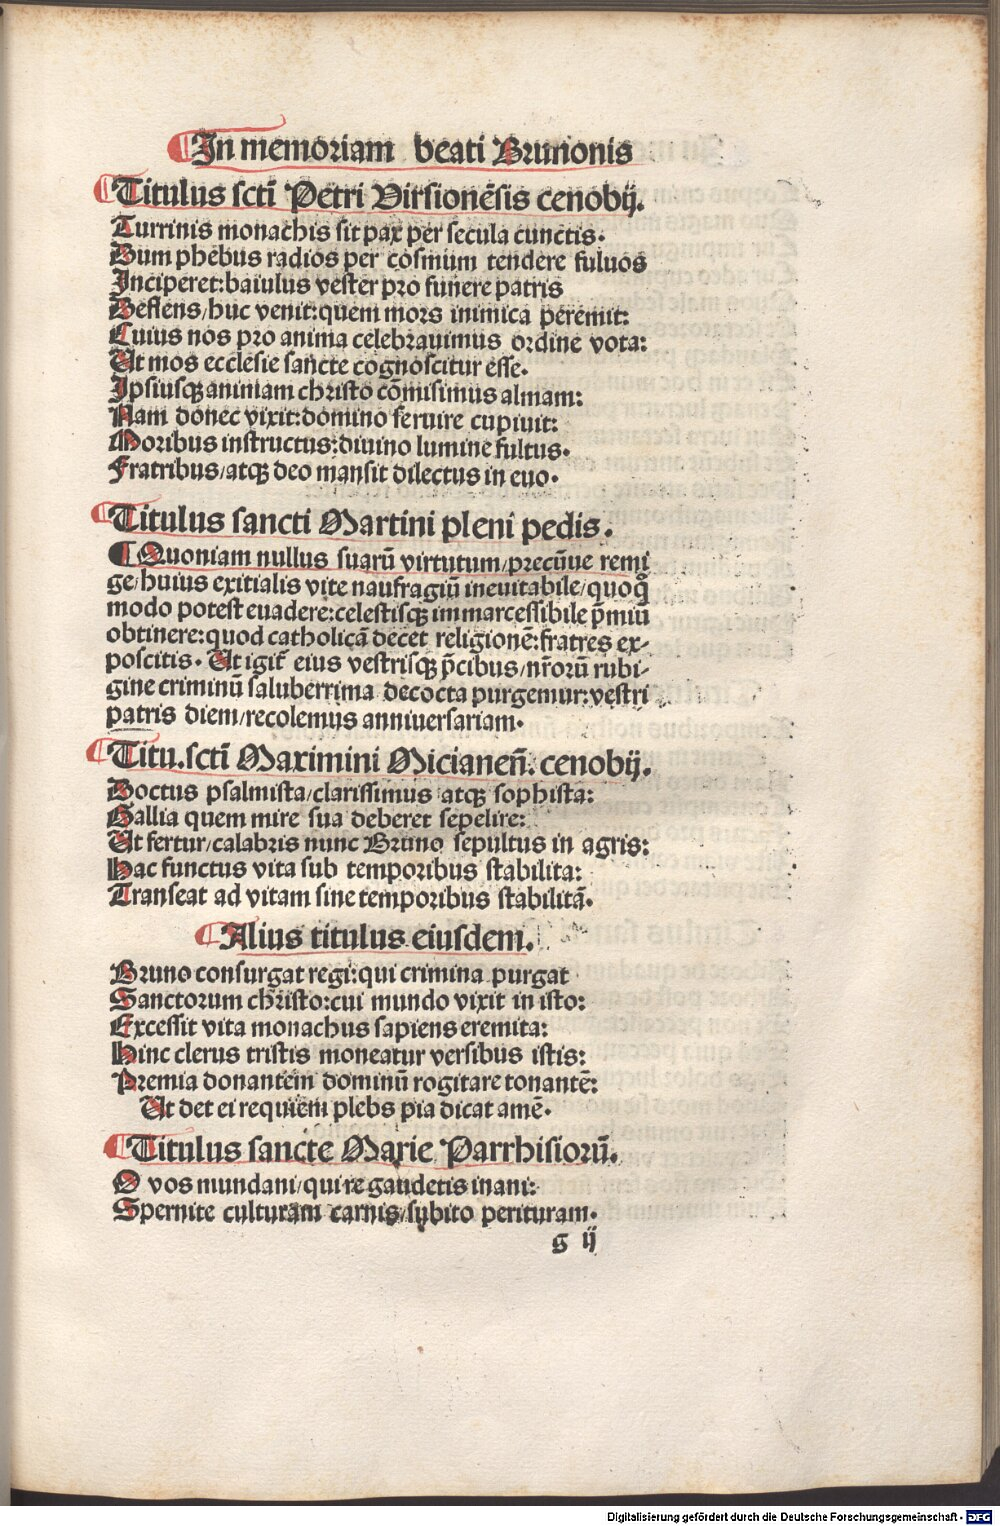 In memoriam beati Brunonis
Titulus sctī Petri Virsionēsis cenobij.
Turrinis monachis sit pax per secula cunctis.
Dum phebus radios per cosmum tendere fuluos
Inciperet: baiulus vester pro funere patris
Deflens/ huc venit: quem mors inimica peremit:
Cuius nos pro anima celebrauimus ordine vota:
Ut mos ecclesie sancte cognoscitur esse.
Ipsiusqȝ animam christo cōmisimus almam:
Nam donec vixit: domino seruire cupiuit:
Moribus instructus: diuino lumine fultus.
Fratribus/ atqȝ deo mansit dilectus in euo.
Titulus sancti Martini pleni pedis.
¶ Quoniam nullus suarū virtutum/ precūue remi
ge/ huius exitialis vite naufragiū ineuitabile/ quoqͣ
modo potest euadere: celestisqȝ immarcessibile p̄miū
obtinere: quod catholicā decet religionē: fratres ex-
poscitis. Ut igit̄ eius vestrisqȝ p̄cibus/ nr̄orū rubi-
gine criminū saluberrima decocta purgemur: vestri
patris diem/ recolemus anniuersariam.
Titu. sctī Maximini Micianeñ. cenobij.
Doctus psalmista/ clarissimus atqȝ sophista:
Gallia quem mire sua deberet sepelire:
Ut fertur/ calabris nunc Bruno sepultus in agris:
Hac functus vita sub temporibus stabilita:
Transeat ad vitam sine temporibus stabilitā.
Alius titulus eiusdem.
Bruno consurgat regi: qui crimina purgat
Sanctorum christo: cui mundo vixit in isto:
Excessit vita monachus sapiens eremita:
Hinc clerus tristis moneatur versibus istis:
Premia donantem dominū rogitare tonantē:
Ut det ei requiem plebs pia dicat amē.
Titulus sancte Marie Parrhisiorū.
O vos mundani/ qui re gaudetis inani:
Spernite culturam carnis/ subito perituram.
g ij
Digitalisierung gefördert durch die Deutsche Forschungsgemeinschaft - DFG